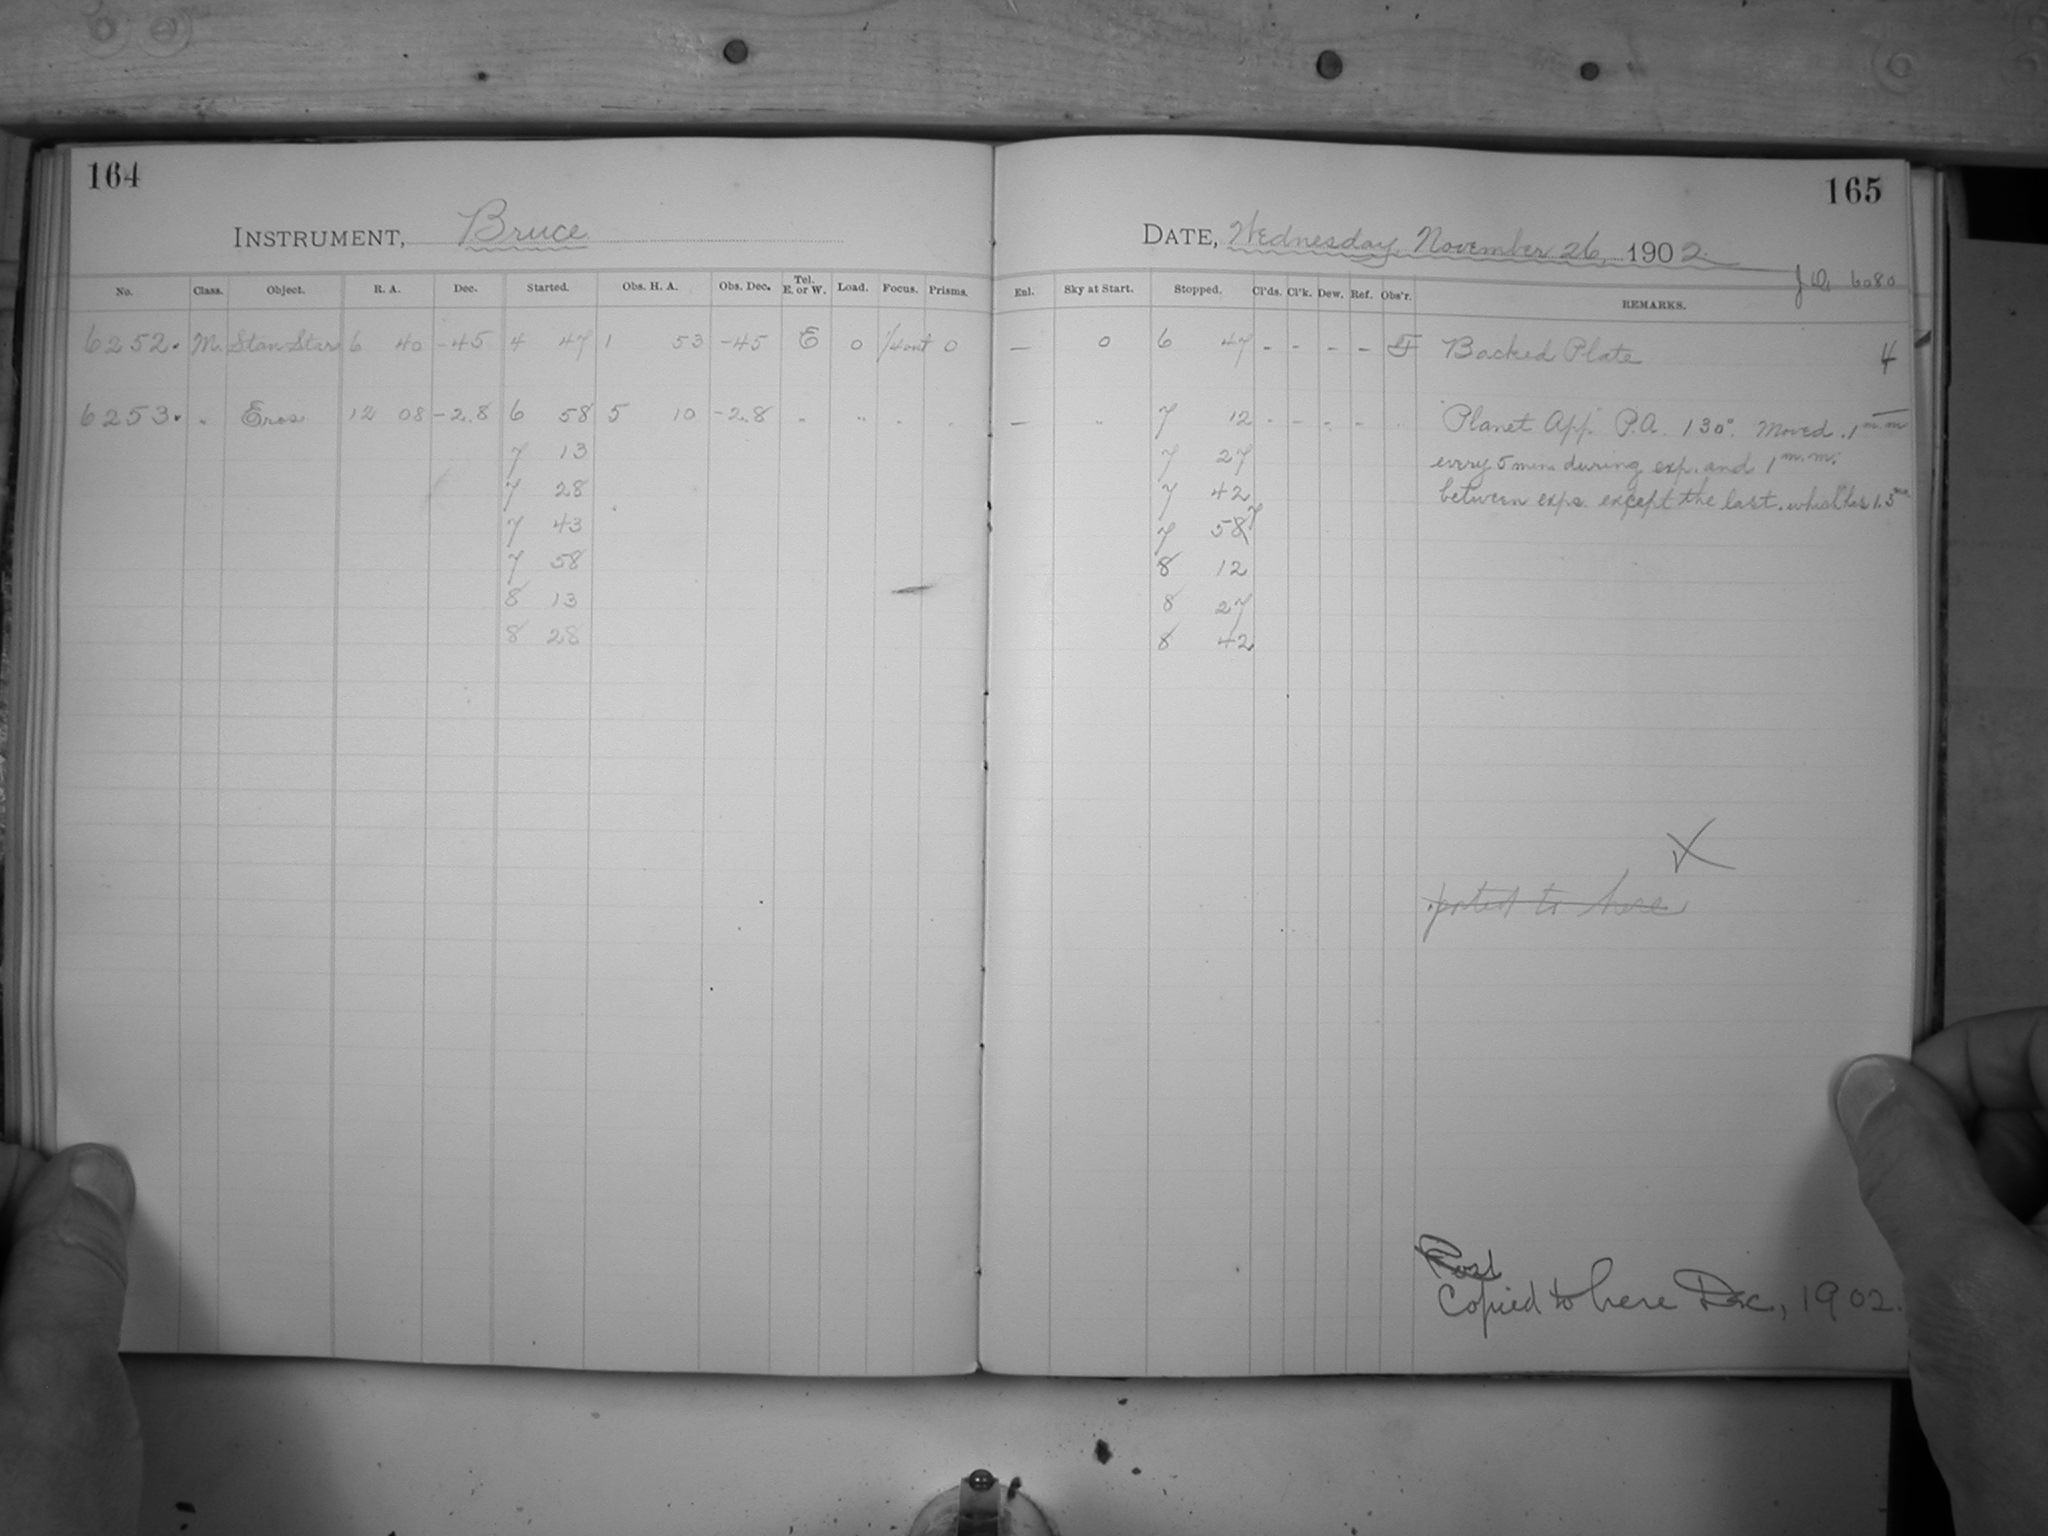 164
INSTRUMENT, Bruce
No. Class. Object. R. A. Dec. Started. Obs. H. A. Obs. Dec. Tel. E. or W. Load. Focus. Prisms.
6252. M. Stan Stars 6 40 -45 4 47 1 53 -45 E 0 0
6253. " Eros 12 08 -2.8 6 58 5 10 -2.8 " " " "
7 13
7 28
7 43
7 58
8 13
8 28
165
DATE, Wednesday November 26, 1902.
J.D. 6080
Enl. Sky at Start. Stopped. Cl'ds. Cl'k. Dew. Ref. Obs'r. REMARKS.
— 0 6 47 - - - - F Backed Plate 4
— " 7 12 - - - - " Planet App. P.A. 130°. Moved .1 m.m
7 27 every 5 min. during exp. and 1 m.m.
7 42 between exps. except the last. which has 1.5 mm
7 587
8 12
8 27
8 42
posted to here
Post
Copied to here Dec., 1902.